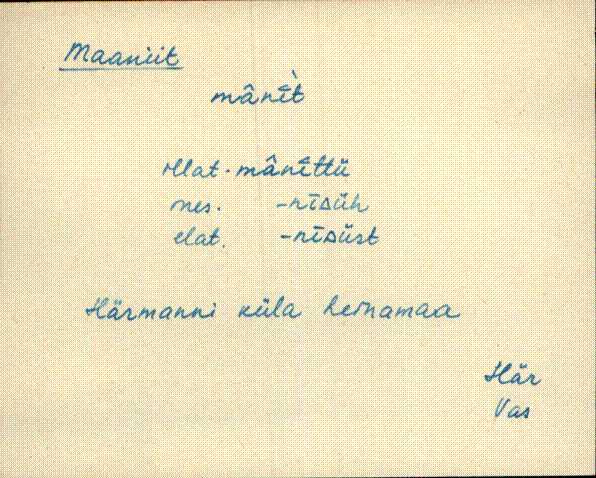 Maaniit
mânī̂t̀
illat. mânī̂ttü
ines. -nīᴅüh
elat. -nīᴅüst
Härmanni küla heinamaa
Här
Vas